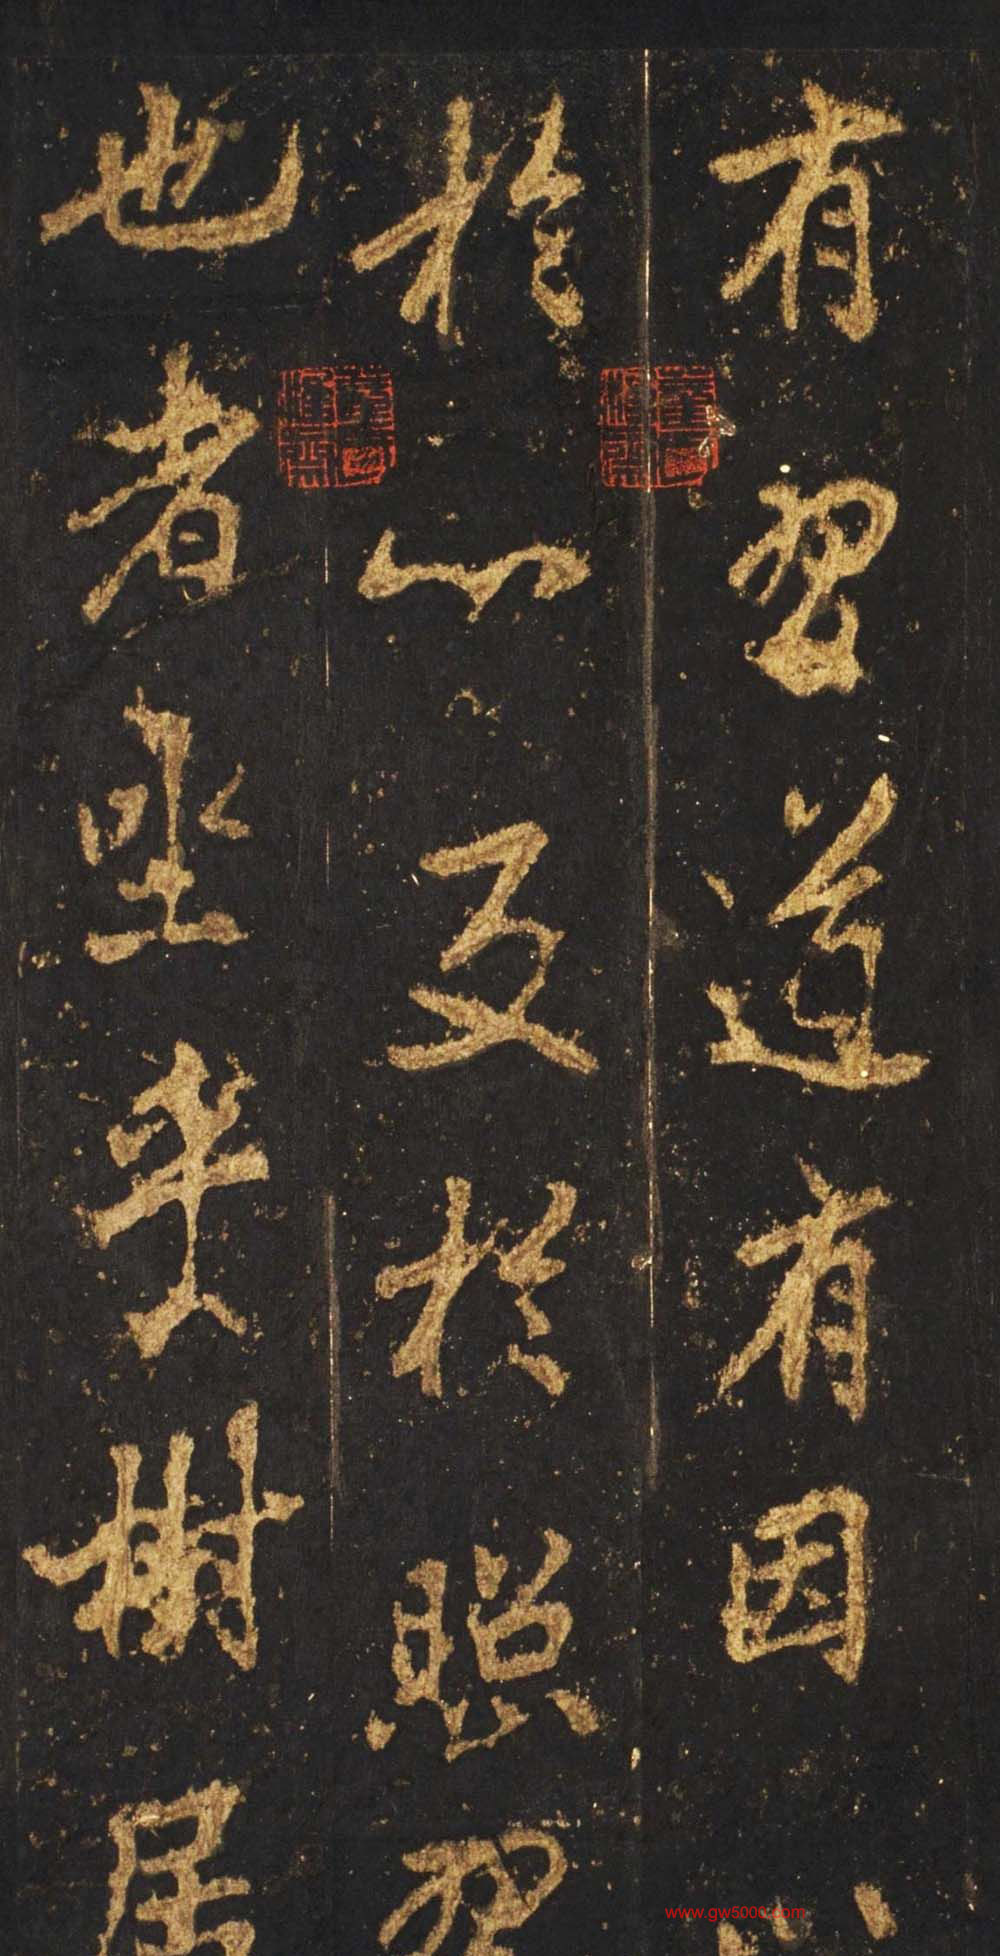 有習道有因心
於心反於照習
也者坐乎樹居
www.gw5000.com